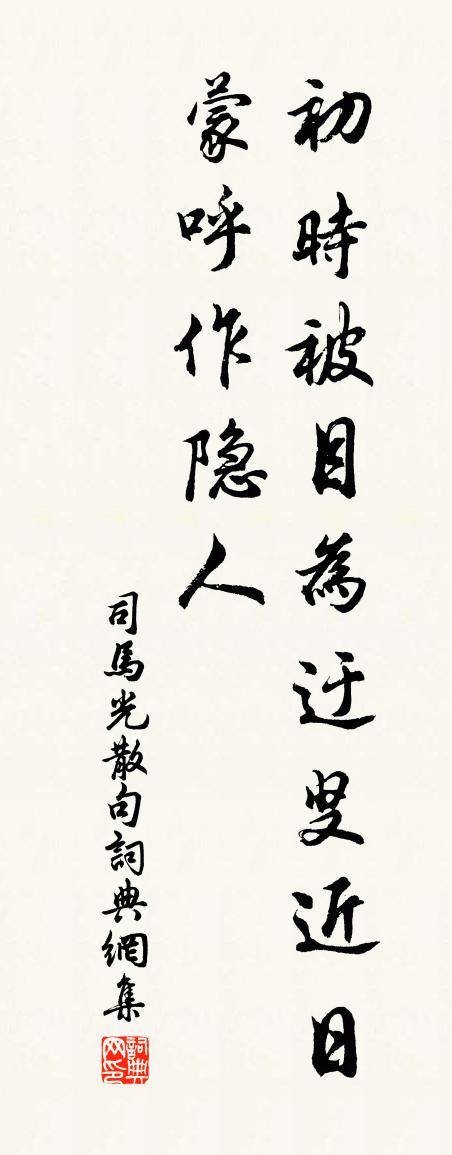 初時被目為迂叟近日
蒙呼作隐人
司馬光散句詞典網集
詞典网印